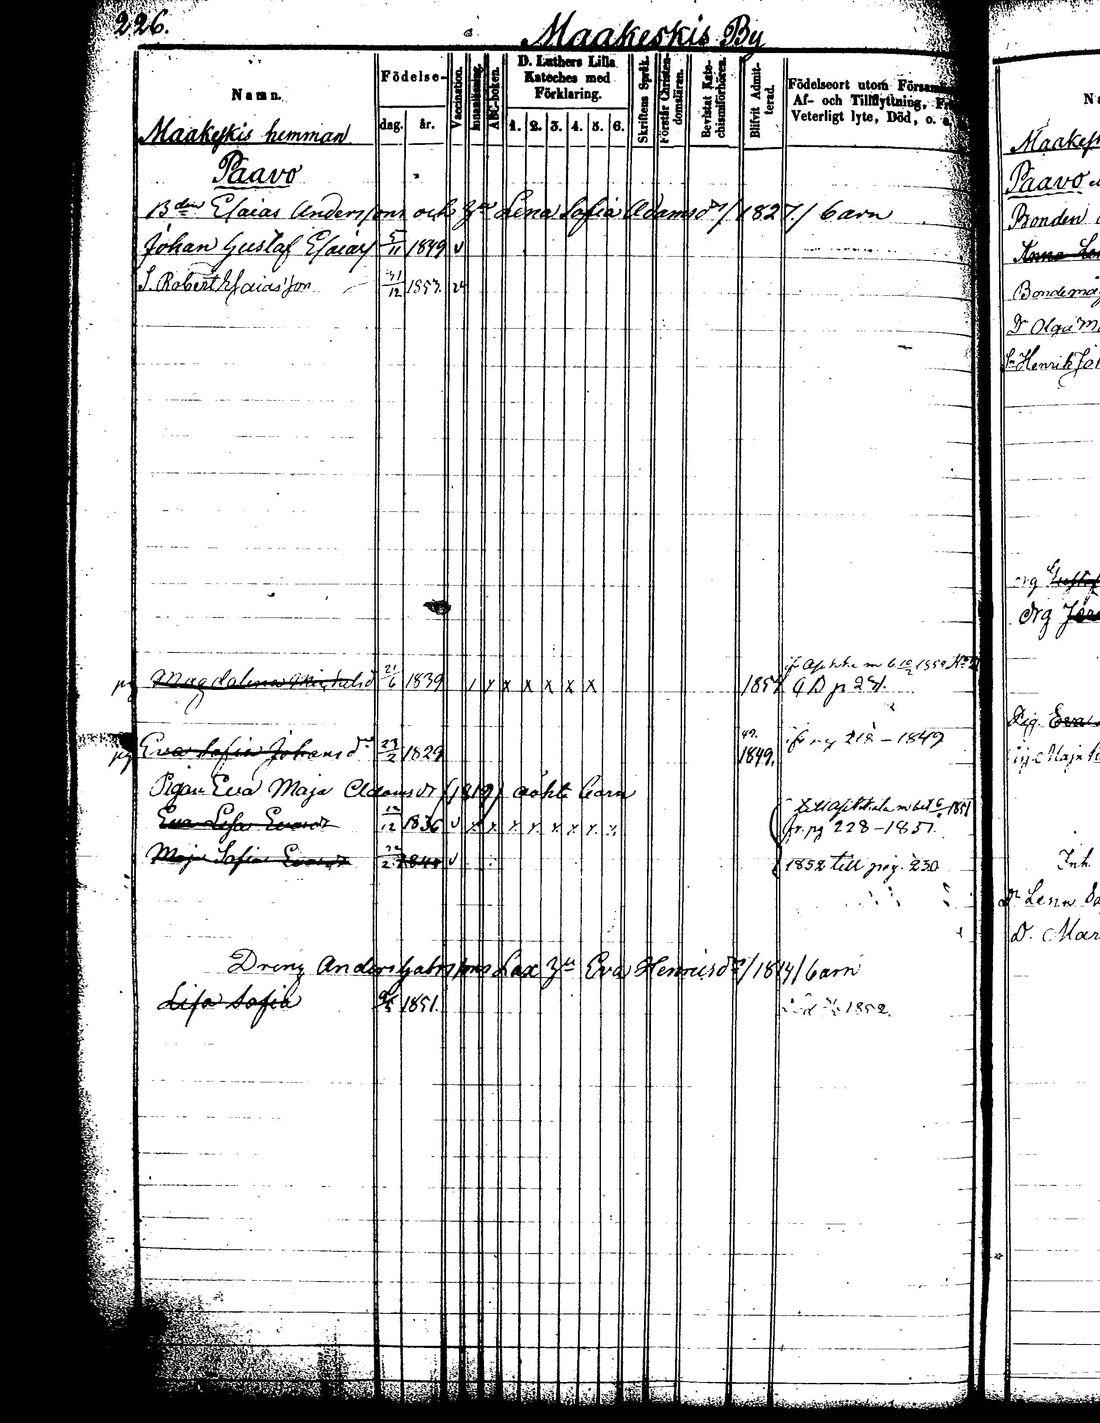 226.
Maakeskis By
Namn.
Födelse-
dag.
år.
Vaccination.
Innanläsning.
ABC-boken.
D. Luthers Lilla
Kateches med
Förklaring.
1. 2. 3. 4. 5. 6.
Skriftens Språk.
Förstår Christen-
domsläran.
Bevistat Kate-
chismiförhören.
Blifvit Admit-
terad.
Födelseort utom Försam
Af- och Tillflyttning, Fr
Veterligt lyte, Död, o. s.
Maakeskis hemman
Paavo
Bden Esaias Anderssons och Lena Sofia Adamsdr /1827/ barn
Johan Gustaf Esaias 5/11 1849 v
S. Robert Esaiasson 31/12 1857.
Magdalena Michelsd 21/6 1839 / x x x x x x 1854
G D p 271.
pig Eva Sofia Johansdr 23/2 1829 49. 1849. fr pg 218-1849
Pigan Eva Maja Adamsdr (1819) oäkta barn
Eva Lisa Evasdr 12/12 1836 v x x x x x x x x 1851
fr. pg 228-1851.
Maja Sofia Evasdr v 1852 till pag. 230
Dreng Anders Gabrssons Lax Eva Henricsdr /1814/ barn
Lisa Sofia 1851. 1852.
Maakes
Paavo
Bonden
Anna Le
Bondemåg
Dr Olga M
Sn Henrik Joh
Gustaf
drg
Pig. Eva
Maja
Inh.
Dr Lena So
D. Mar